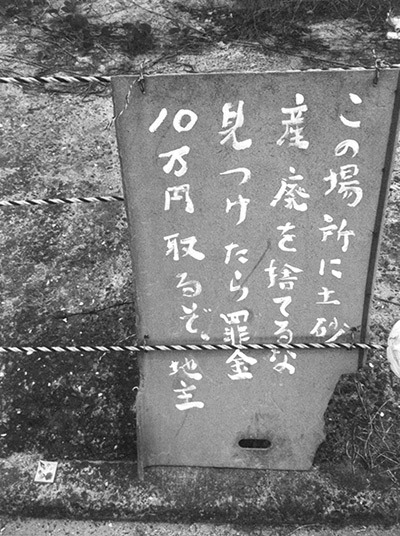 この場所に土砂
産廃を捨てるな
見つけたら罪金
10万円取るぞ、地主